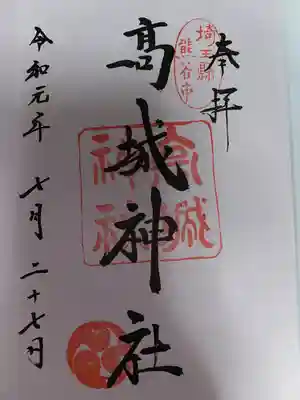 奉拝
埼玉縣
熊谷市
髙城神社
高城
神社
令和元年 七月 二十七日